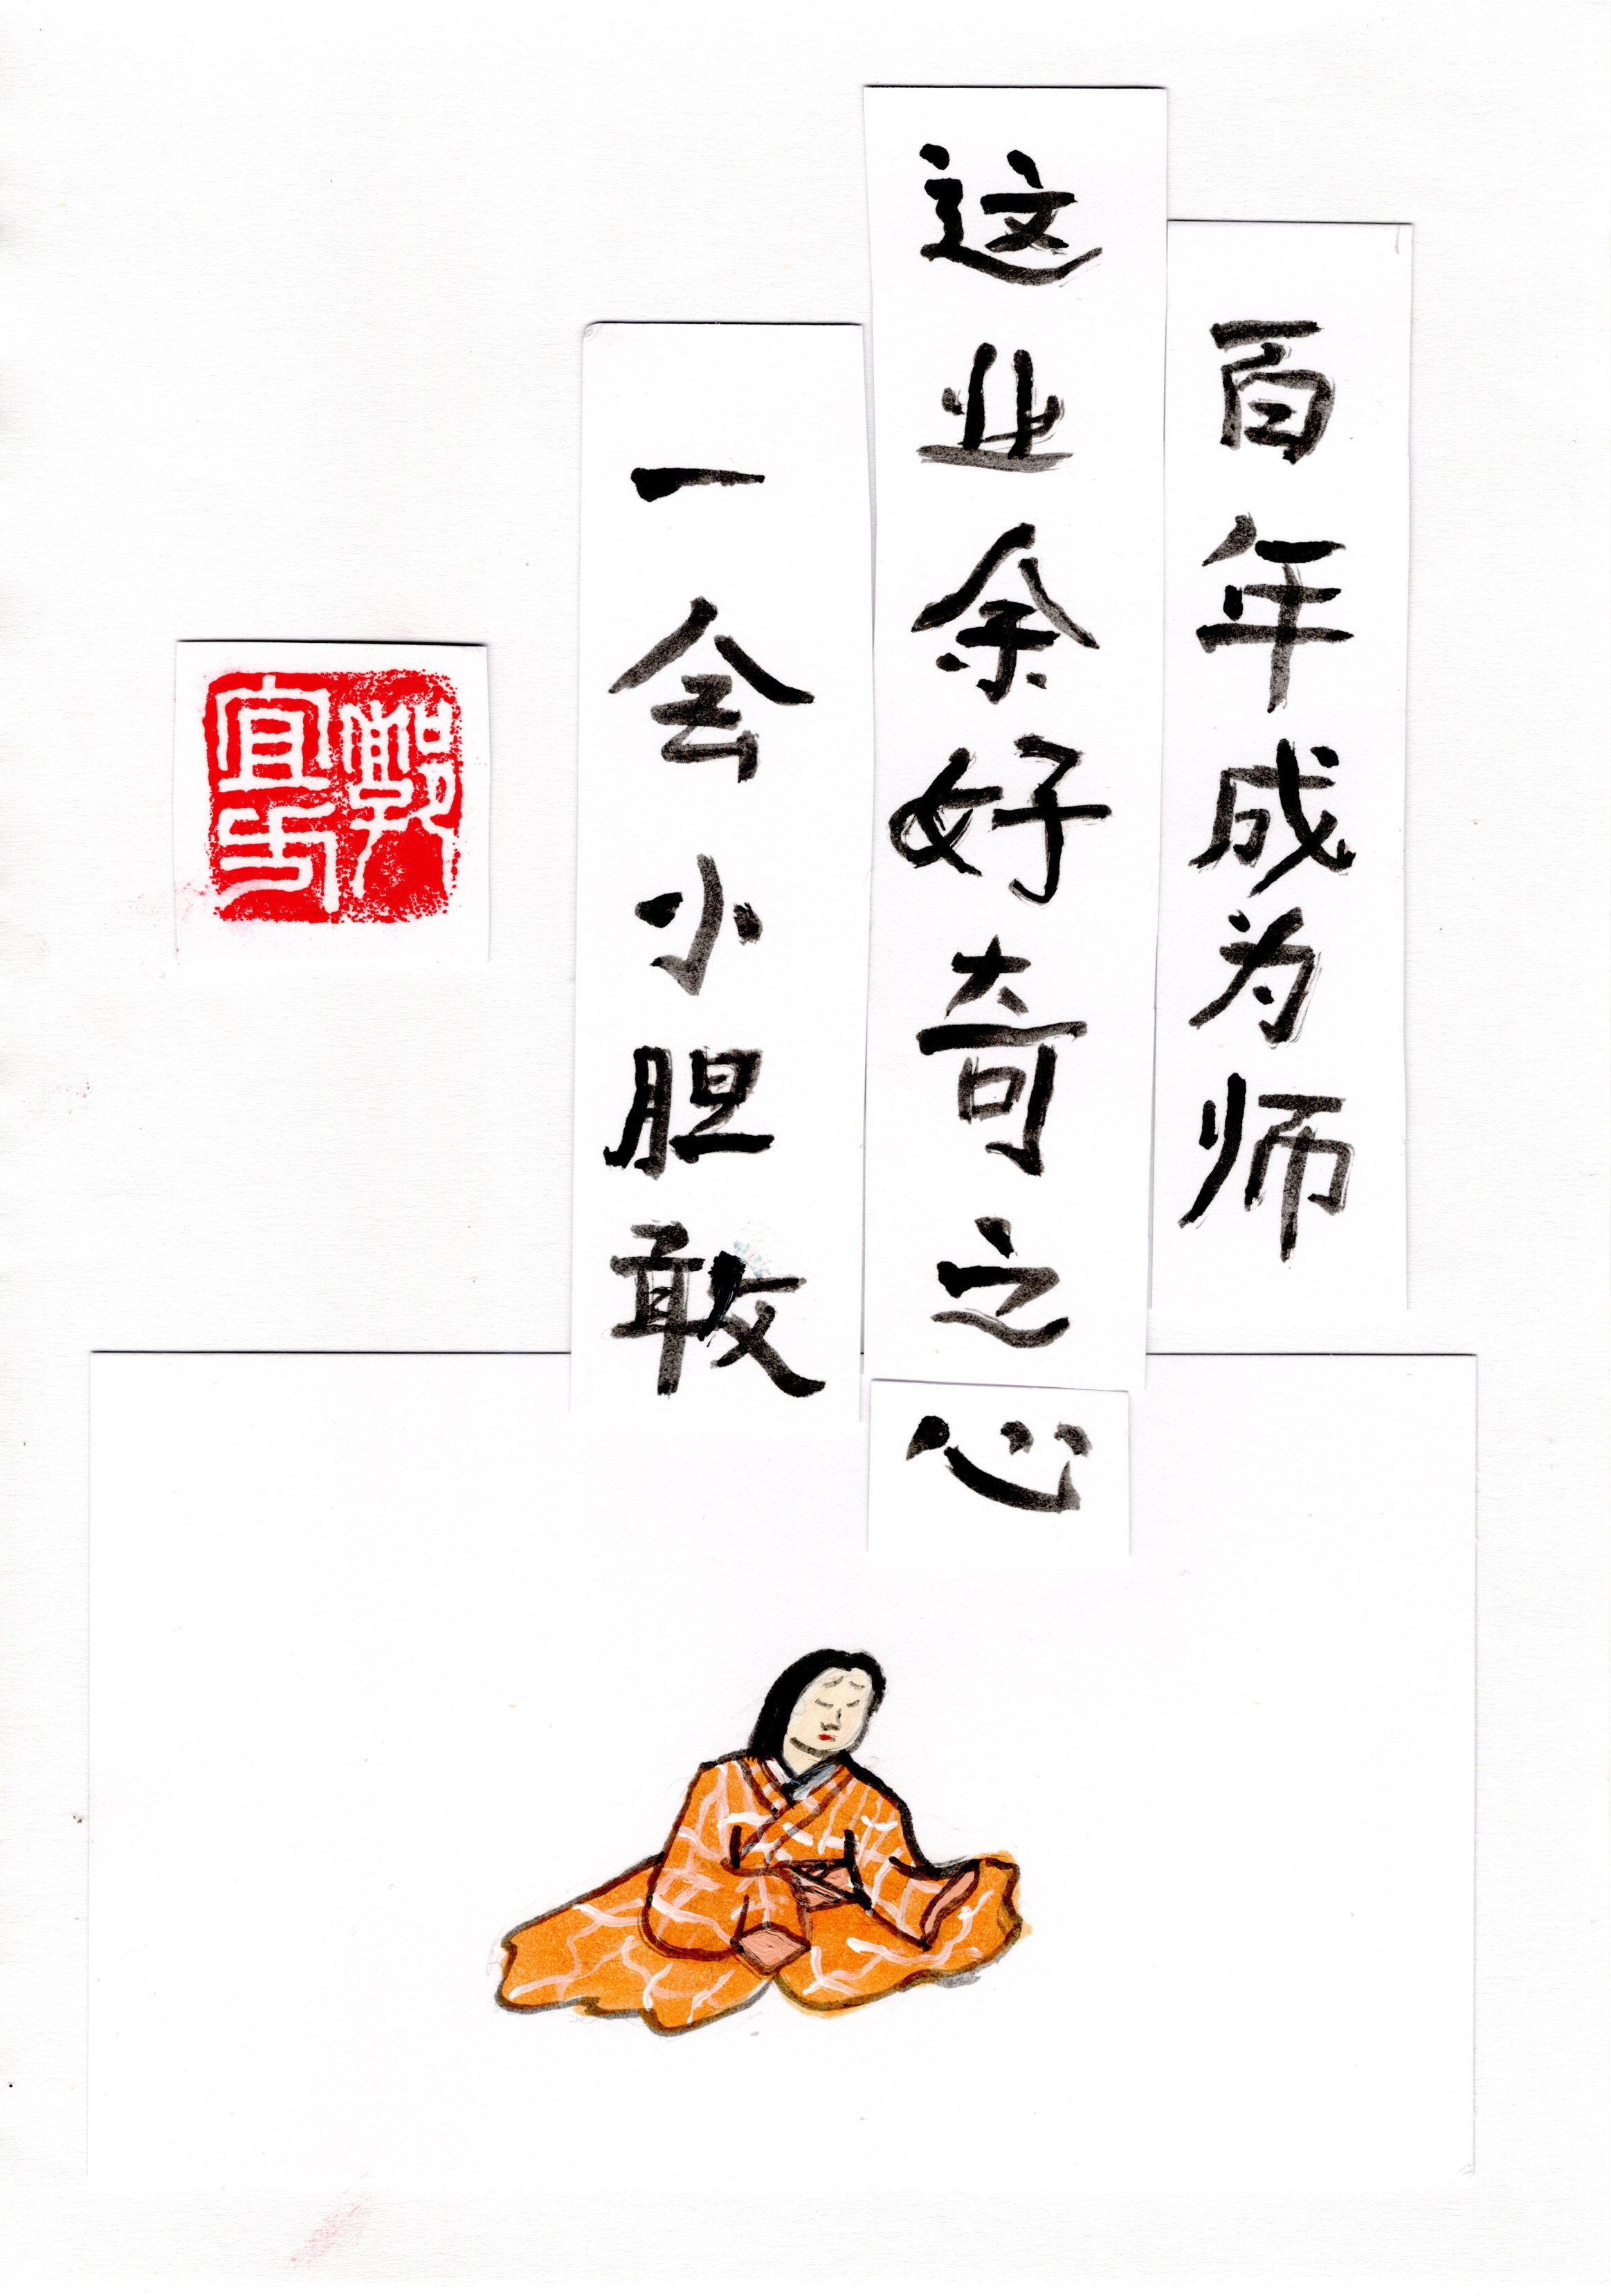 百年成为师
这业余好奇之心
一会小胆敢